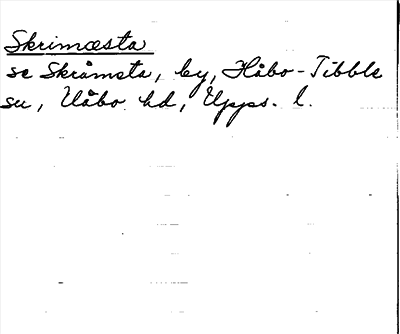 Skrimæsta
se Skråmsta, by, Håbo-Tibble
su, Håbo hd, Upps. l.